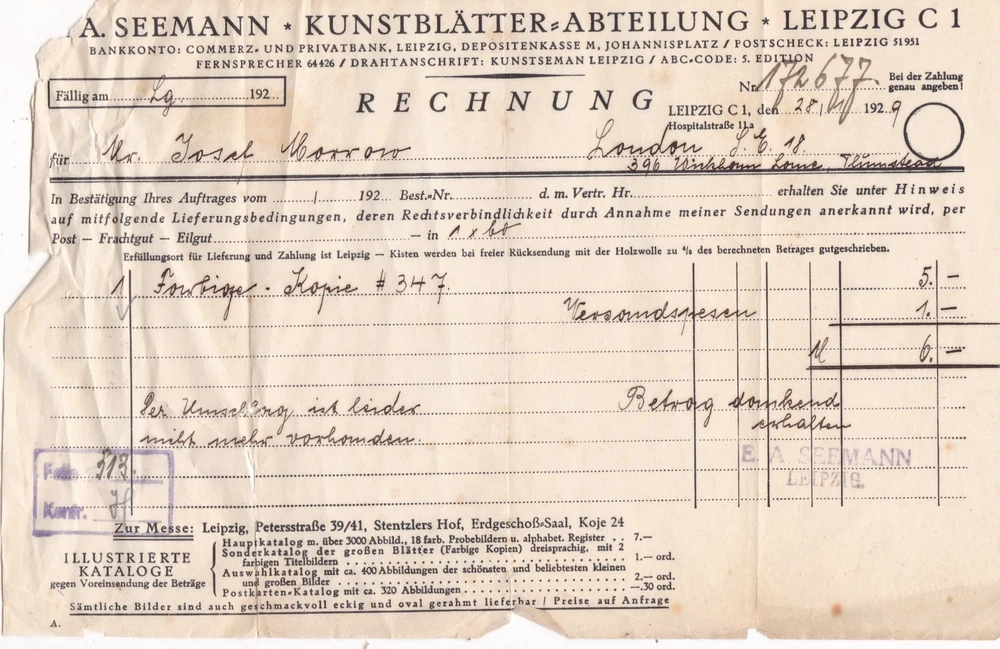 A. SEEMANN * KUNSTBLÄTTER=ABTEILUNG * LEIPZIG C 1
BANKKONTO: COMMERZ- UND PRIVATBANK, LEIPZIG, DEPOSITENKASSE M, JOHANNISPLATZ / POSTSCHECK: LEIPZIG 51951
FERNSPRECHER 64426 / DRAHTANSCHRIFT: KUNSTSEMAN LEIPZIG / ABC-CODE: 5. EDITION
Fällig am Lg 192
RECHNUNG
Nr. 172677. Bei der Zahlung genau angeben!
LEIPZIG C 1, den 28, 1929
Hospitalstraße 11a
für Mr. Josef Morrow London S. E. 18.
396 Wickham Lane, Plumstead
In Bestätigung Ihres Auftrages vom / 192 Best.-Nr. d. m. Vertr. Hr. erhalten Sie unter Hinweis
auf mitfolgende Lieferungsbedingungen, deren Rechtsverbindlichkeit durch Annahme meiner Sendungen anerkannt wird, per
Post — Frachtgut — Eilgut — in 1 x
Erfüllungsort für Lieferung und Zahlung ist Leipzig — Kisten werden bei freier Rücksendung mit der Holzwolle zu 4/5 des berechneten Betrages gutgeschrieben.
1 Farbige - Kopie # 347. 5. —
Versandspesen 1. —
M 6. —
Per Umschlag ist leider Betrag dankend
nicht mehr vorhanden. erhalten
E. A. SEEMANN
LEIPZIG.
Fol. 513.
Kontr.
Zur Messe: Leipzig, Petersstraße 39/41, Stentzlers Hof, Erdgeschoß=Saal, Koje 24
ILLUSTRIERTE
KATALOGE
gegen Voreinsendung der Beträge
Hauptkatalog m. über 3000 Abbild., 18 farb. Probebildern u. alphabet. Register . . 7.—
Sonderkatalog der großen Blätter (Farbige Kopien) dreisprachig, mit 2
farbigen Titelbildern 1.— ord.
Auswahlkatalog mit ca. 400 Abbildungen der schönsten und beliebtesten kleinen
und großen Bilder 2.— ord.
Postkarten-Katalog mit ca. 320 Abbildungen —.30 ord.
Sämtliche Bilder sind auch geschmackvoll eckig und oval gerahmt lieferbar / Preise auf Anfrage
A.